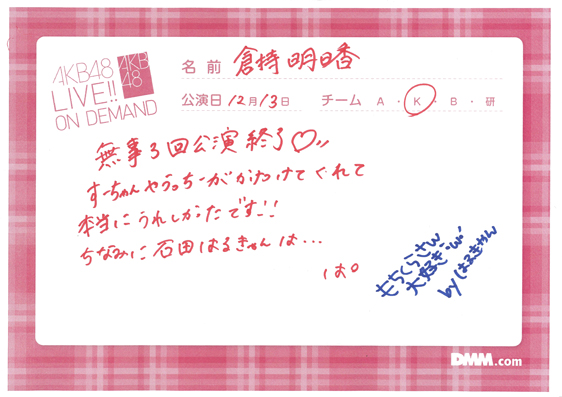 AKB48
LIVE!!
ON DEMAND
AKB
48
名前 倉持明日香
公演日 12月13日 チーム A・K・B・研
無事3回公演終了♡
すーちゃんやうっちーがかけつけてくれて
本当にうれしかったです!!
ちなみに石田はるきゃんは…
は。
もちくらさん
大好き
byはるきゃん
DMM.com